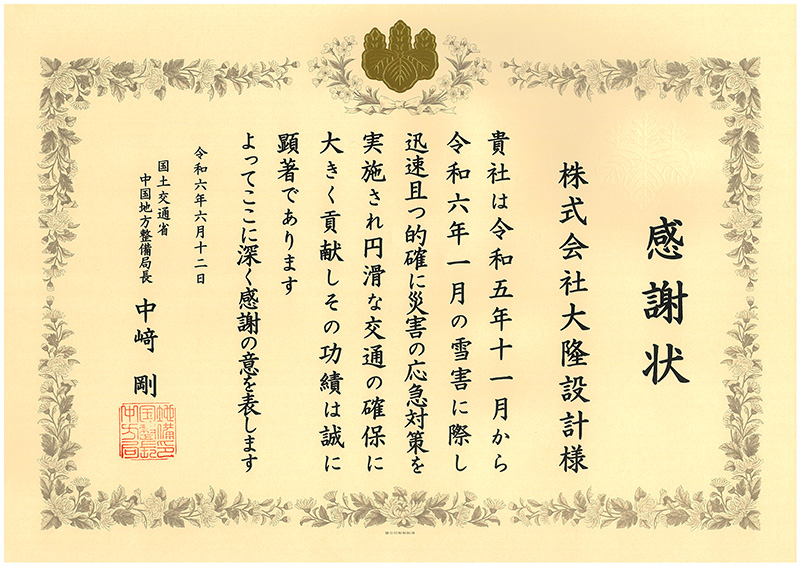 感謝状
株式会社大隆設計様
貴社は令和五年十一月から
令和六年一月の雪害に際し
迅速且つ的確に災害の応急対策を
実施され円滑な交通の確保に
大きく貢献しその功績は誠に
顕著であります
よってここに深く感謝の意を表します
令和六年六月十二日
国土交通省
中国地方整備局長
中﨑 剛